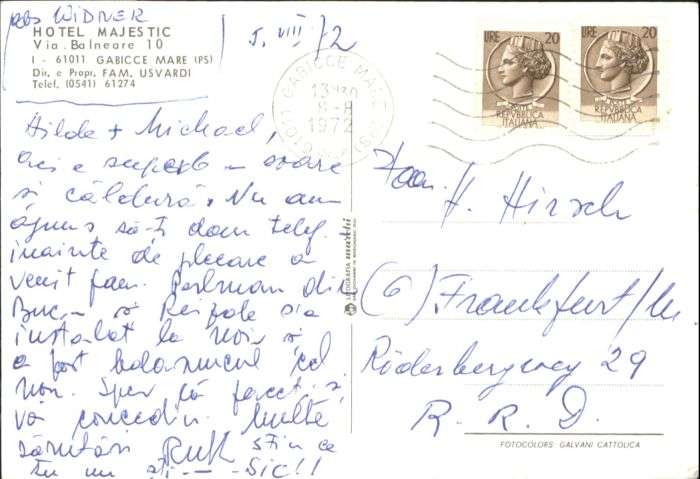 WIDNER
HOTEL MAJESTIC
Via Balneare 10
I - 61011 GABICCE MARE (PS)
Dir. e Propr. FAM. USVARDI
Telef. (0541) 61274
5. VIII /72
61011 GABICCE MARE
13-
8-8
1972
LIRE 20
POSTE
REPVBBLICA
ITALIANA
LIRE 20
POSTE
REPVBBLICA
ITALIANA
Hilde + Michael,
aci e superb – soare
și căldură. Nu am
ajuns să-ți dau telef.
înainte de plecare a
venit fam. Perlman din
Buc. și Reizele s-a
instalat la noi și
a fost balamucul cel
mare. Sper că faceți și
voi concediu. Multe
sănătăți Ruth știu ca
tu nu ști — sic!!
LITOGRAFIA
Fam. H. Hirsch
(6) Frankfurt/M.
Röderbergweg 29
B. R. D.
FOTOCOLORS GALVANI CATTOLICA